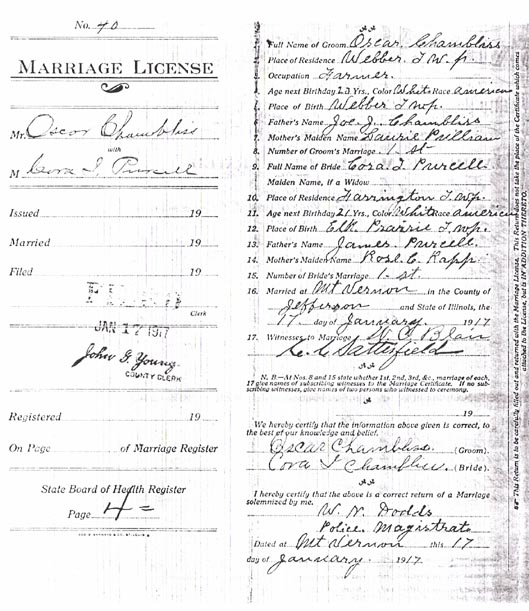 No. 40
MARRIAGE LICENSE
Mr. Oscar Chambliss
with
M Cora I. Purcell
Issued 19
Married 19
Filed 19
Clerk
JAN 17 1917
John G. Young
COUNTY CLERK
Registered 19
On Page of Marriage Register
State Board of Health Register
Page 4
1. Full Name of Groom Oscar Chambliss
2. Place of Residence Webber Twp.
3. Occupation Farmer.
4. Age next Birthday 23 Yrs., Color White Race american
5. Place of Birth Webber Twp.
6. Father's Name Joe J. Chambliss
7. Mother's Maiden Name Laurie Pulliam
8. Number of Groom's Marriage 1-st
9. Full Name of Bride Cora I Purcell
Maiden Name, if a Widow
10. Place of Residence Farrington Twp.
11. Age next Birthday 21 Yrs., Color White Race american
12. Place of Birth Elk Prairie Twp.
13. Father's Name James Purcell.
14. Mother's Maiden Name Rose C Rapp.
15. Number of Bride's Marriage 1-st.
16. Married at Mt Vernon in the County of
Jefferson and State of Illinois, the
17 day of January. 1917
17. Witnesses to Marriage W. C Blair
Satterfield
N. B.—At Nos. 8 and 15 state whether 1st, 2nd, 3rd, &c., marriage of each.
17 give names of subscribing witnesses to the Marriage Certificate. If no sub-
scribing witnesses, give names of two persons who witnessed to ceremony.
19
We hereby certify that the information above given is correct, to
the best of our knowledge and belief.
Oscar Chambliss (Groom).
Cora I Chambliss (Bride).
I hereby certify that the above is a correct return of a Marriage
solemnized by me.
W. N. Dodds
Police Magistrate
Dated at Mt Vernon this 17
day of January. 1917.
This Return is to be carefully filled out and returned with the Marriage License. This Return does not take the place of the Certificate which comes
attached to the License, but is IN ADDITION THERETO.